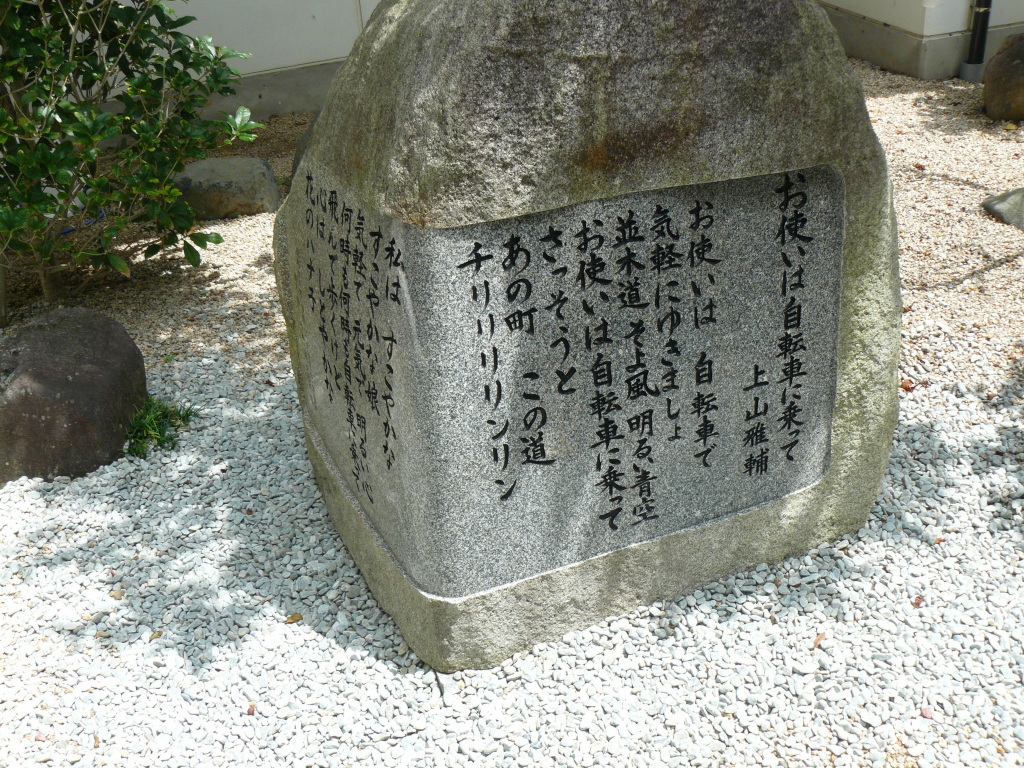 お使いは自転車に乗って
上山雅輔
お使いは 自転車で
気軽にゆきましょ
並木道 そよ風 明るい青空
お使いは自転車に乗って
さっそうと
あの町 この道
チリリリリンリン
私は すこやかな
すこやかな娘
気軽で 元気で 明るい心
何時も何時も自転車に乗って
飛んで歩くけど
心は
花の